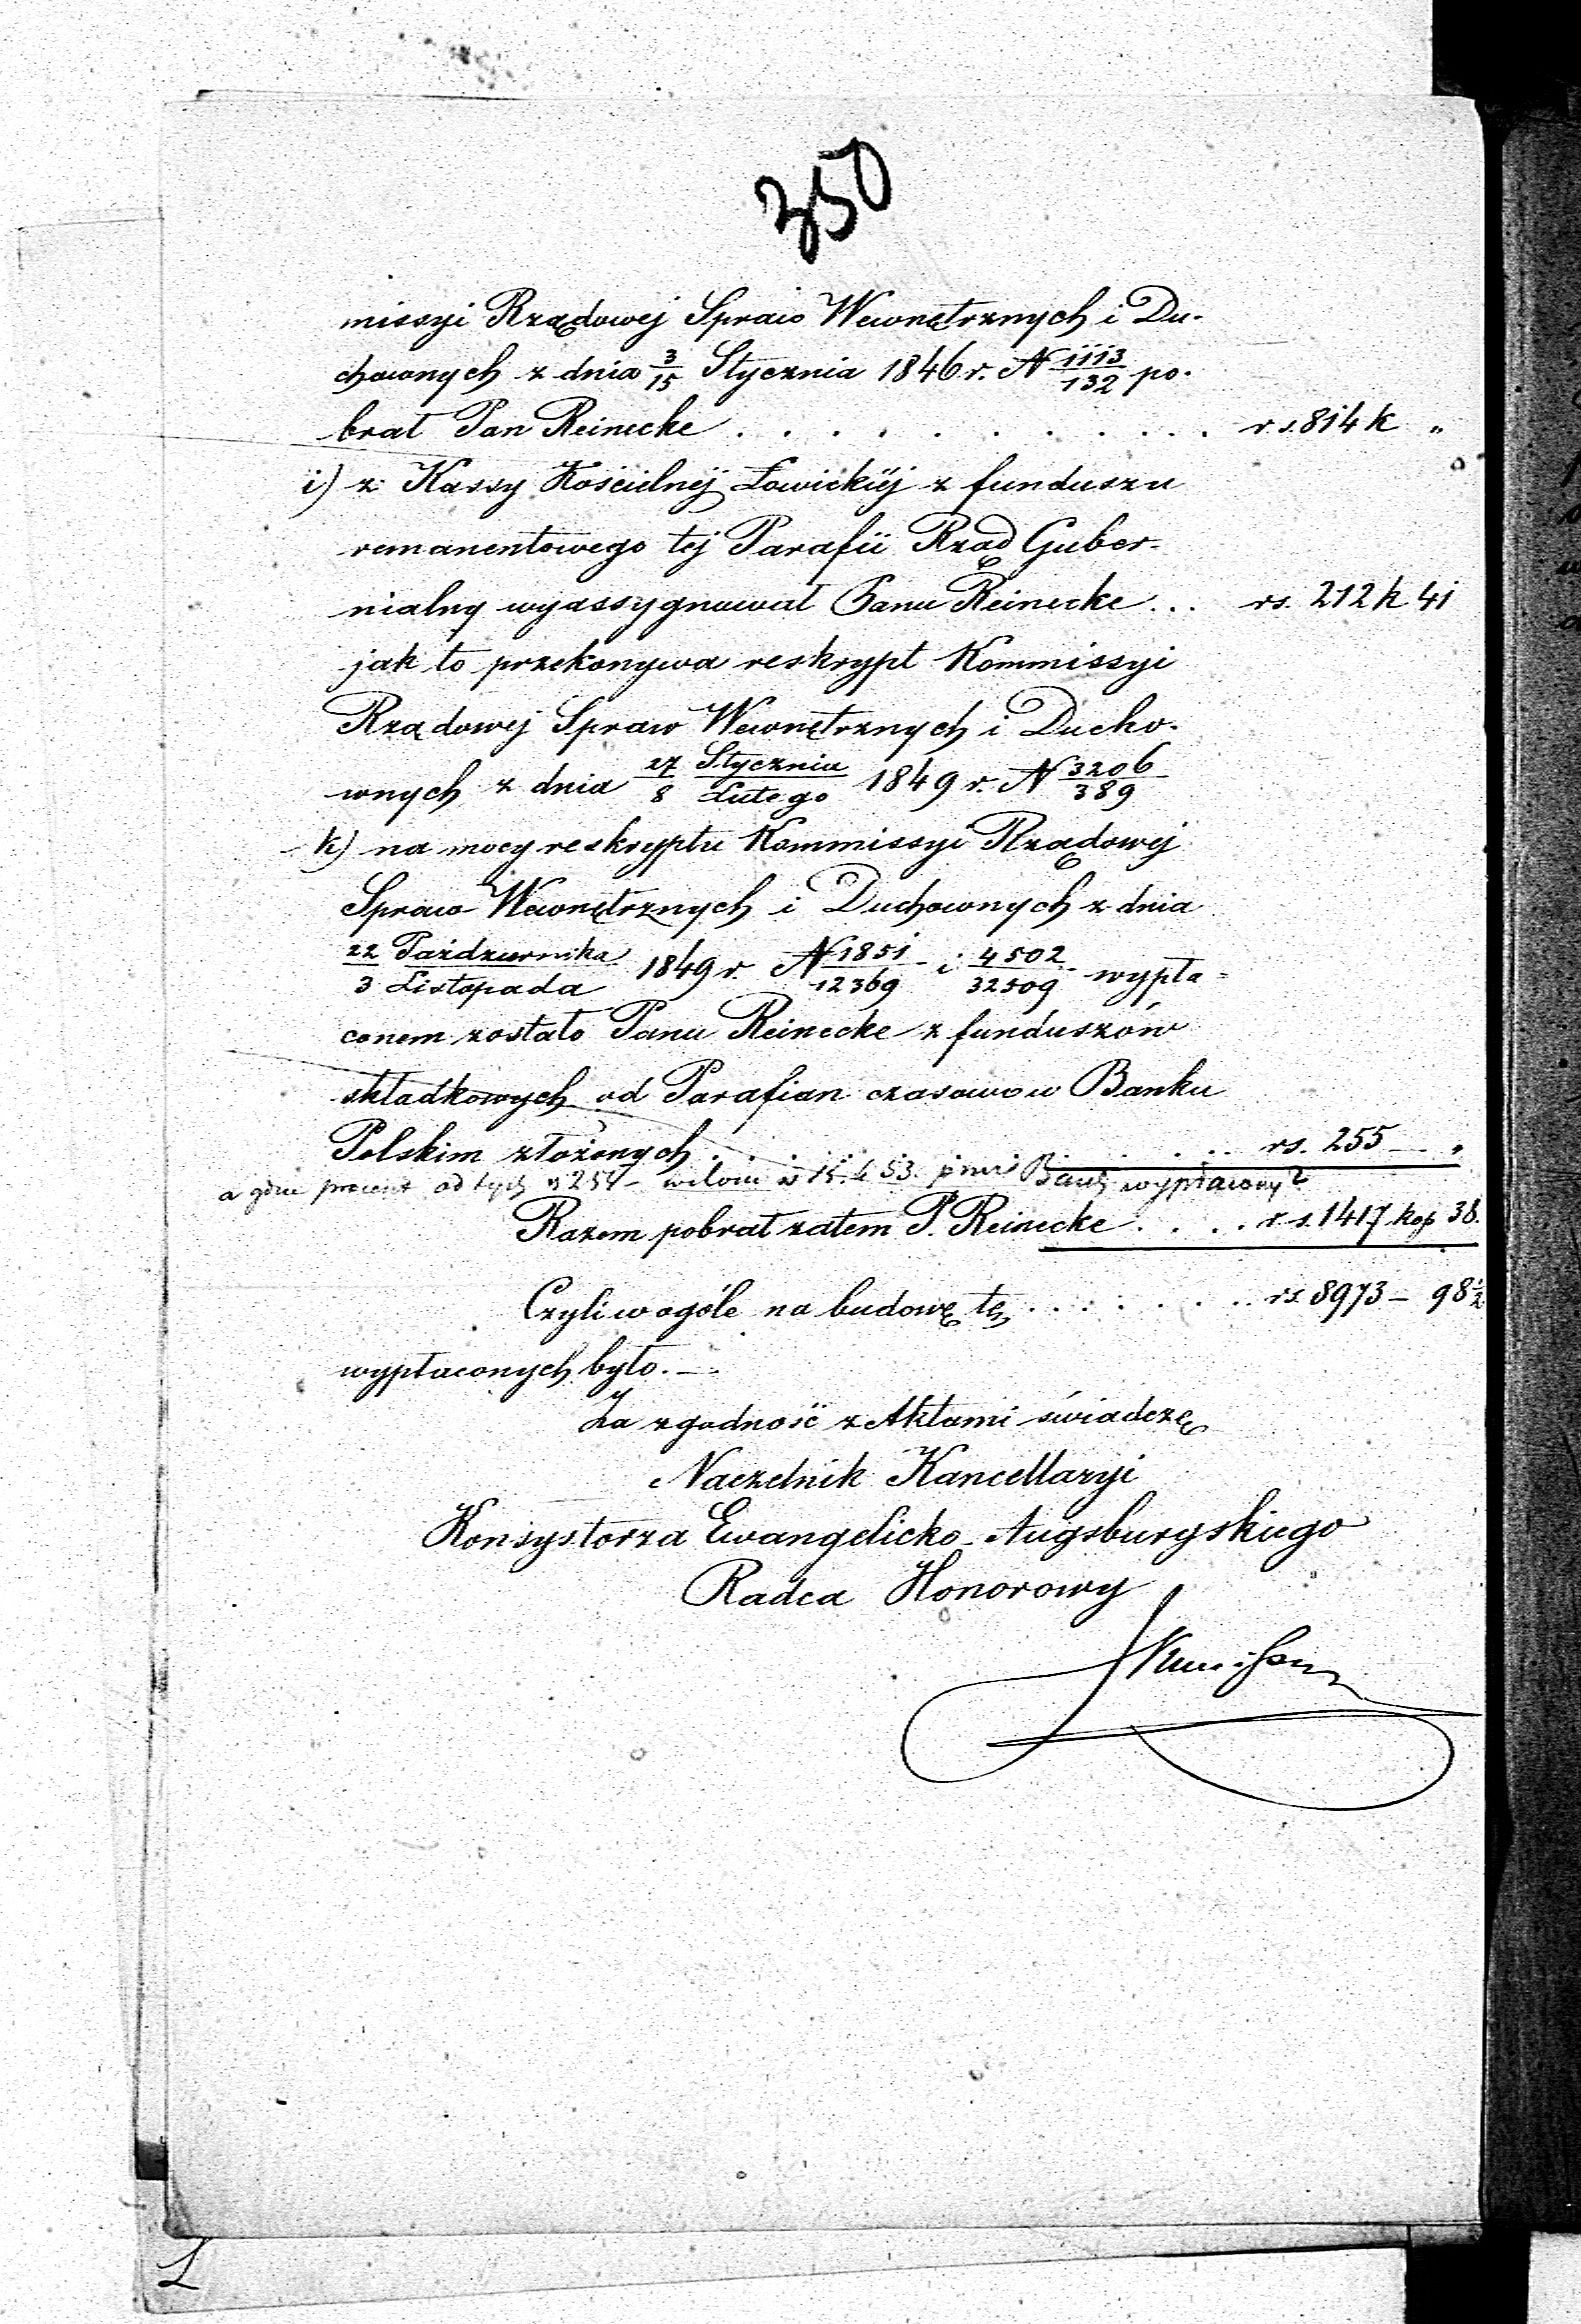 350
missyi Rządowej Spraw Wewnętrznych i Du-
chownych z dnia 3/15 Stycznia 1846 r. N 1113/132 po-
brał Pan Reinecke . . . . . . . . . . . rs. 814 k "
i) z Kassy Kościelnéj Łowickiéj z funduszu
remanentowego tej Parafii Rząd Guber-
nialny wyassygnował Panu Reinecke . . . rs. 212 k 41
jak to przekonywa reskrypt Kommissyi
Rządowej Spraw Wewnętrznych i Ducho-
wnych z dnia 27 Stycznia/8 Lutego 1849 r. N 3206/389
k) na mocy reskryptu Kommissyi Rządowej
Spraw Wewnętrznych i Duchownych z dnia
22 Października/3 Listopada 1849 r. N 1851/12369 i 4502/32509 wypła-
conem zostało Panu Reinecke z funduszów
składkowych od Parafian czasowo w Banku
Polskim złożonych . . . . . . . . . . rs. 255 — "
a gdzie procent od tych rs 254 — k 53. Bank wypłacony?
Razem pobrał zatem P. Reinecke . . . . rs. 1417 kop 38.
Czyli w ogóle na budowę tę . . . . . . . rs. 8973 — 98 1/2
wypłaconych było. —
Za zgodność z Aktami świadczę
Naczelnik Kancellaryi
Konsystorza Ewangelicko-Augsburgskiego
Radca Honorowy